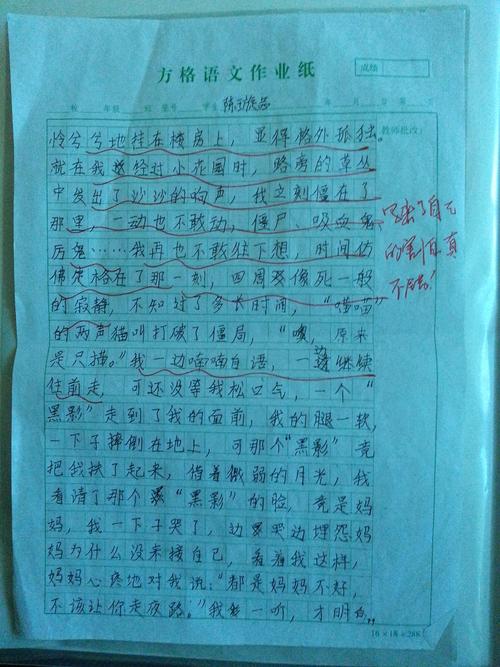 方格语文作业纸
成绩
校 年级 班 座号 学生 年 月 日 第 页
教师批改：
怜兮兮地挂在楼房上，显得格外孤独。
就在我经过小花园时，路旁的草丛
中发出了沙沙的响声，我立刻僵在了
那里，一动也不敢动，僵尸、吸血鬼
厉鬼……我再也不敢往下想，时间仿
佛定格在了那一刻，四周像死一般
的寂静，不知过了多长时间，“喵喵”
的两声猫叫打破了僵局，“噢，原来
是只猫。”我一边喃喃自语，一边继续
往前走，可还没等我松口气，一个“
黑影”走到了我的面前，我的腿一软，
一下子摔倒在地上，可那个“黑影”竟
把我扶了起来，借着微弱的月光，我
看清了那个“黑影”的脸，竟是妈
妈，我一下子哭了，边哭边埋怨妈
妈为什么没来接自己，看着我这样，
妈妈心疼地对我说：“都是妈妈不好，
不该让你走夜路。”我一听，才明白，
写出了自己
的害怕，真
不错！
16×18=288